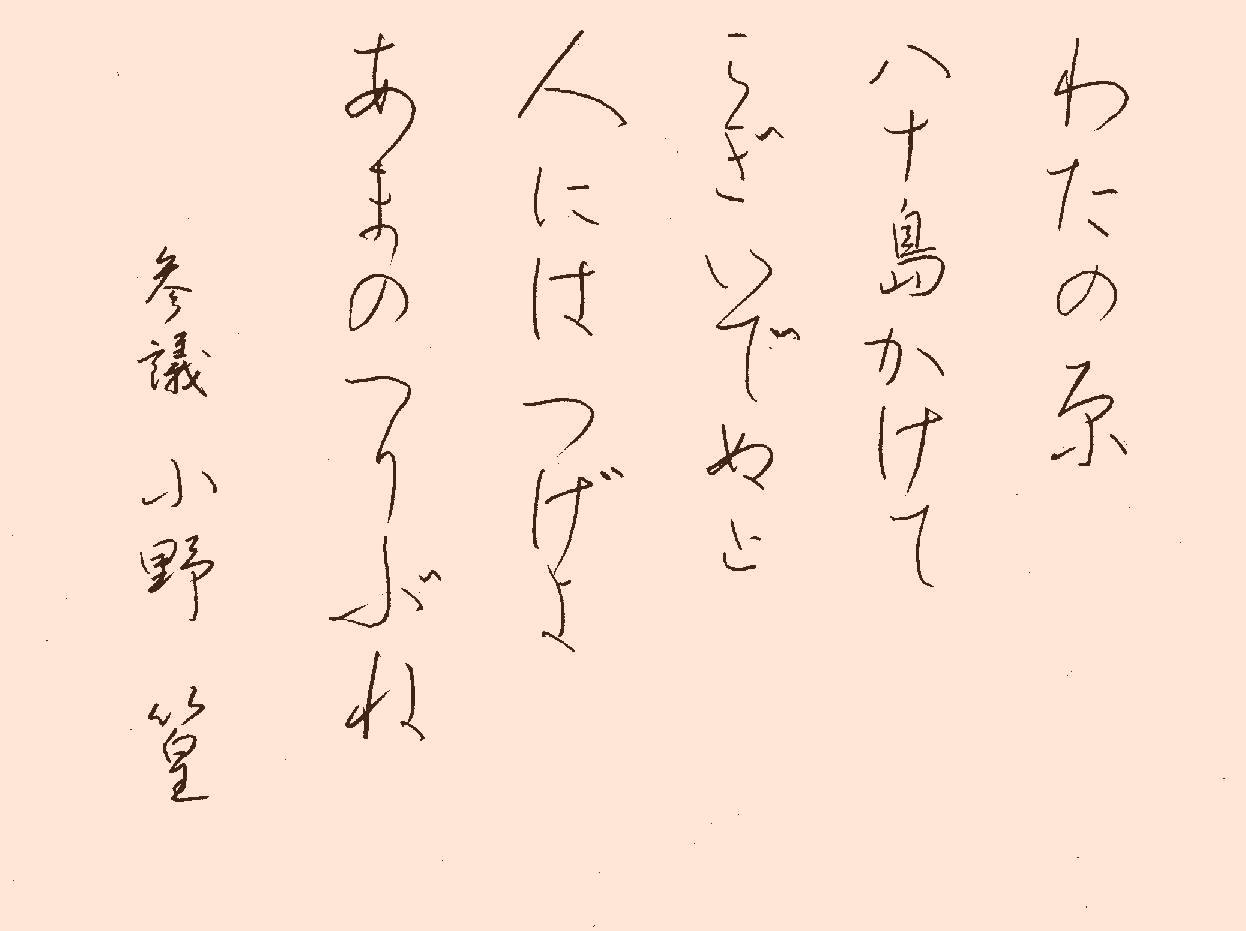 わたの原
八十島かけて
こぎいでぬと
人にはつげよ
あまのつりぶね
参議 小野 篁